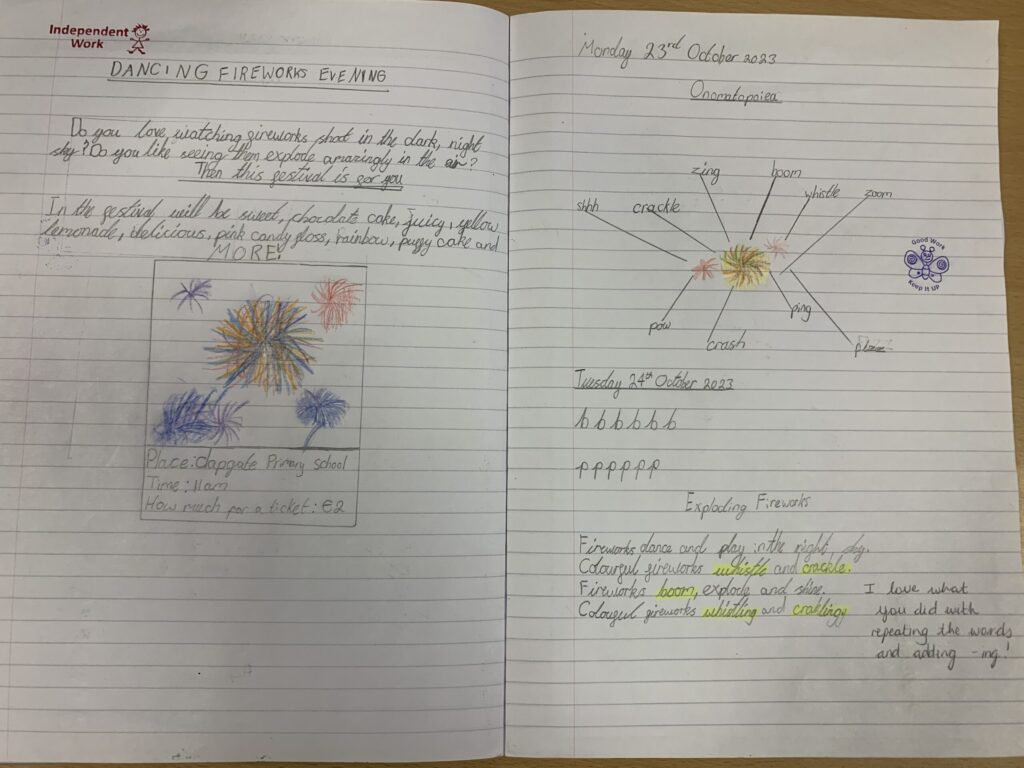 Independent
Work
DANCING FIREWORKS EVENING
Do you love watching fireworks shoot in the dark, night
sky? Do you like seeing them explode amazingly in the air?
Then this festival is for you
In the festival will be sweet, chocolate cake, juicy, yellow
lemonade, delicious, pink candy floss, rainbow, puffy cake and
MORE!
Place: Clapgate Primary School
Time: 11am
How much for a ticket: €2
Monday 23rd October 2023
Onomatopoiea
zing
boom
whistle
zoom
shhh
crackle
Good Work
Keep It Up
pow
ping
crash
Tuesday 24th October 2023
b b b b b b
p p p p p p
Exploding Fireworks
Fireworks dance and play in the night sky.
Colourful fireworks whistle and crackle.
Fireworks boom, explode and shine.
Colouful fireworks whistling and crakling
I love what
you did with
repeating the words
and adding -ing!